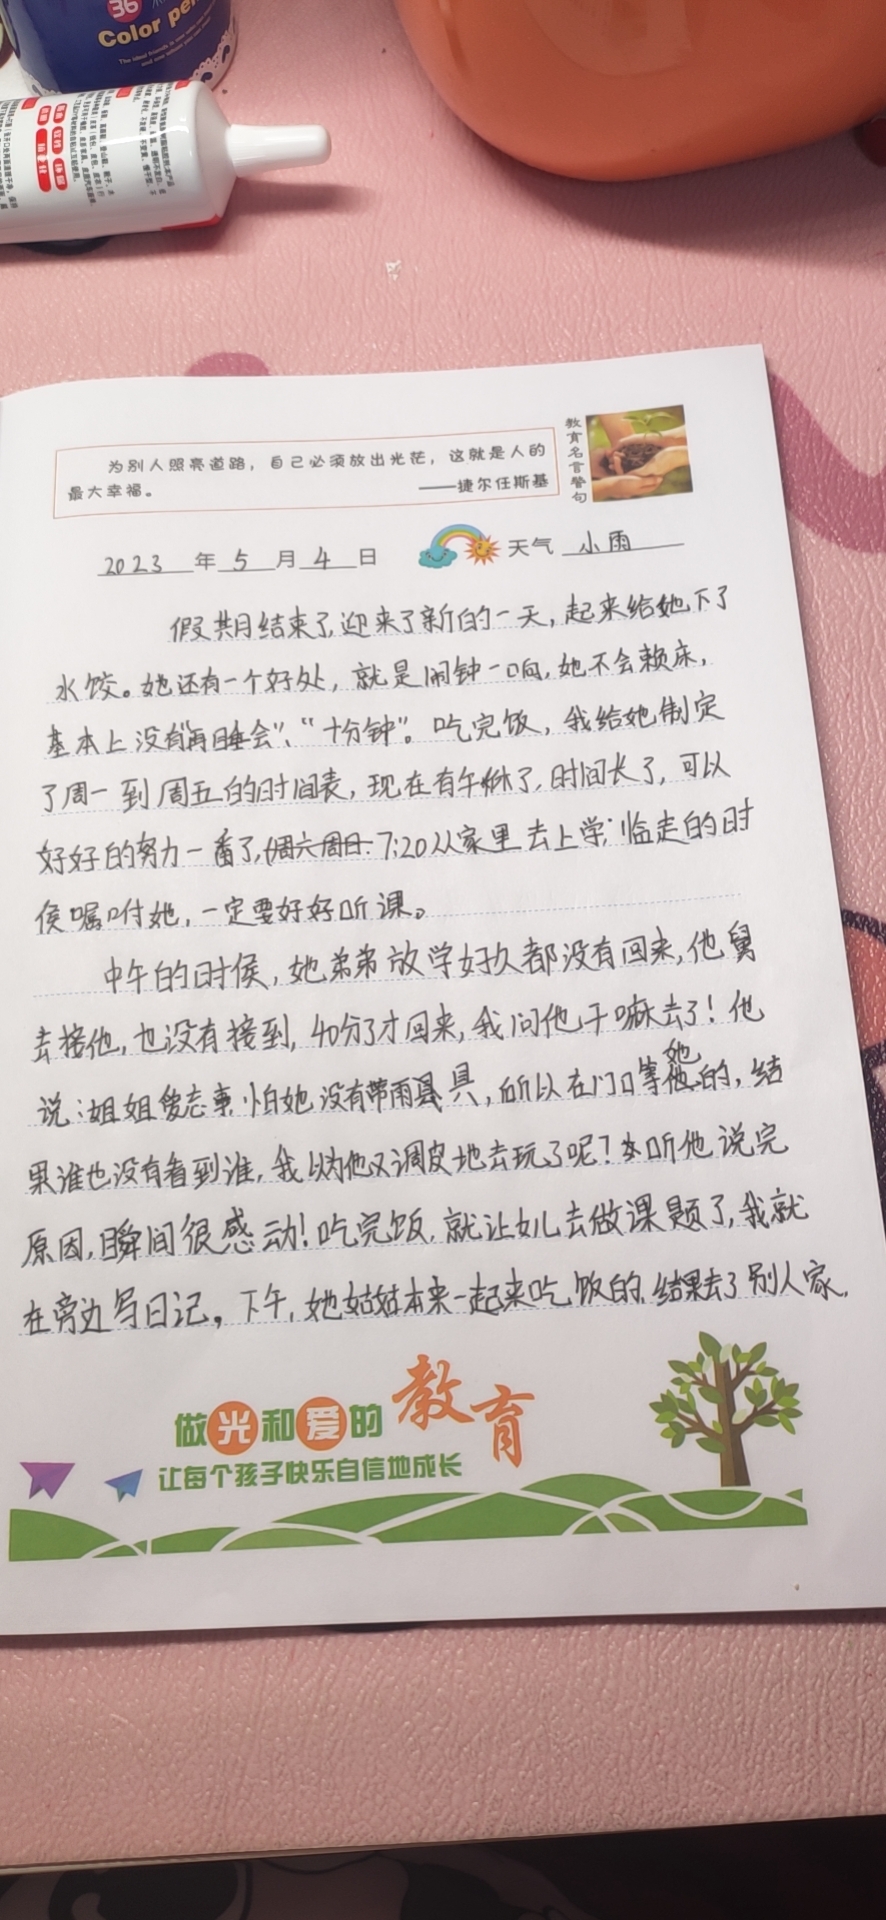 36
Color pe
为别人照亮道路，自己必须放出光芒，这就是人的
最大幸福。
——捷尔任斯基
教育名言警句
2023年5月4日 天气 小雨
假期结束了,迎来了新的一天，起来给她下了
水饺。她还有一个好处，就是闹钟一响，她不会赖床，
基本上没有“再睡会”、“十分钟”。吃完饭，我给她制定
了周一到周五的时间表，现在有午休了，时间长了，可以
好好的努力一番了，周六周日. 7:20从家里去上学；临走的时
侯嘱咐她，一定要好好听课。
中午的时侯，她弟弟放学好久都没有回来，他舅
去接他，也没有接到，40分了才回来，我问他干嘛去了！他
说：姐姐爱忘事，怕她没有带雨具，所以在门口等她的，结
果谁也没有看到谁，我以为他又调皮地去玩了呢？听他说完
原因，瞬间很感动！吃完饭，就让女儿去做课题了，我就
在旁边写日记。下午，她姑姑本来一起来吃饭的，结果去了别人家，
做光和爱的教育
让每个孩子快乐自信地成长